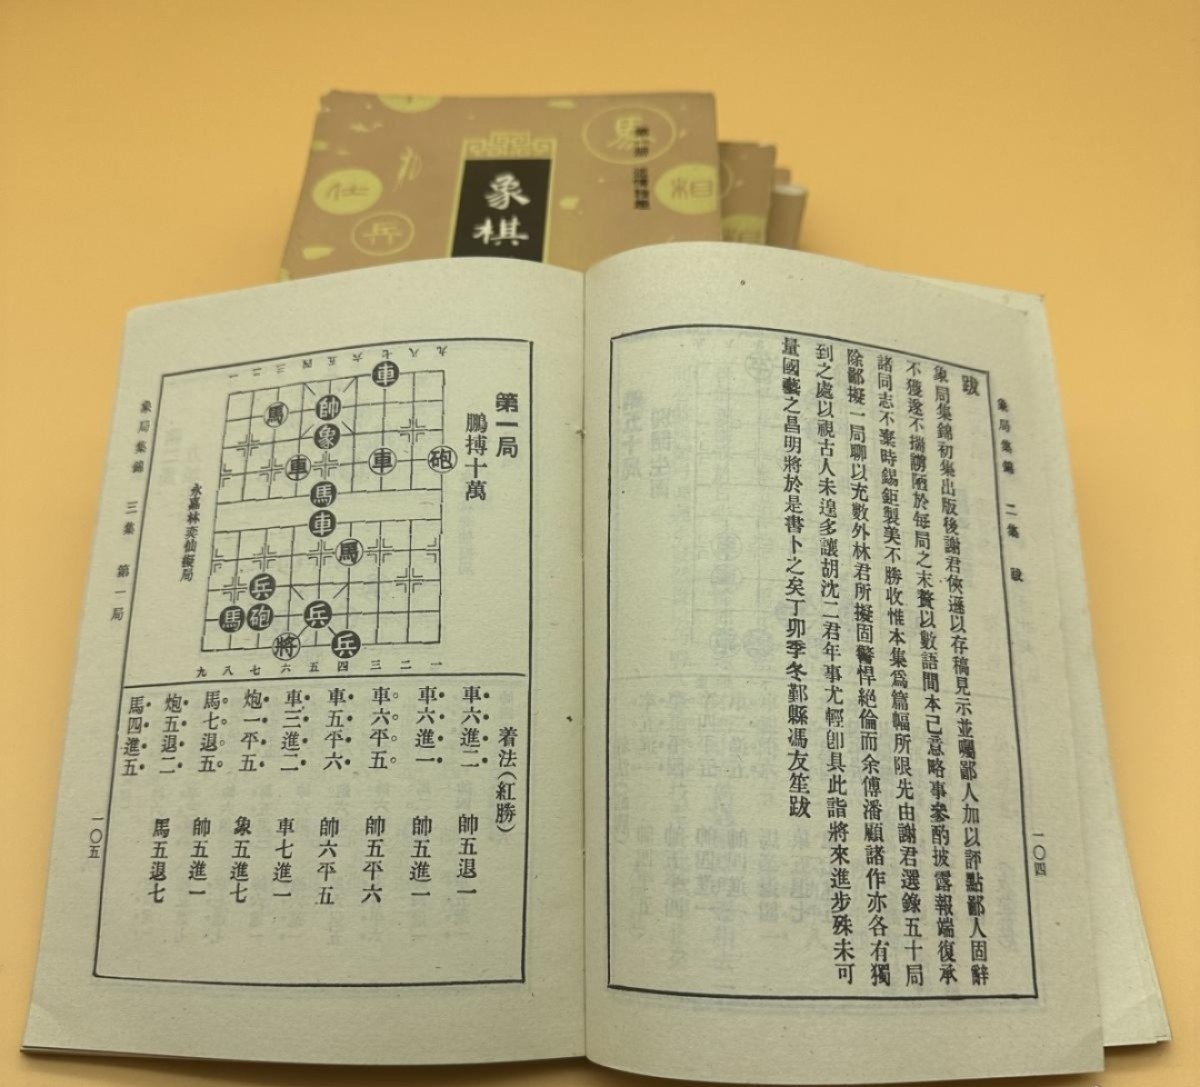 象棋
仕
兵
馬
相
象局集錦 二集 跋
跋
象局集錦初集出版後謝君俠遜以存稿見示並囑鄙人加以評點鄙人固辭
不獲遂不揣謭陋於每局之末贅以數語間本己意略事參酌披露報端復承
諸同志不棄時錫鉅製美不勝收惟本集爲篇幅所限先由謝君選錄五十局
除鄙擬一局聊以充數外林君所擬固警悍絕倫而余傅潘顧諸作亦各有獨
到之處以視古人未遑多讓胡沈二君年事尤輕卽具此詣將來進步殊未可
量國藝之昌明將於是書卜之矣丁卯季冬鄞縣馮友笙跋
一〇四
第一局
鵬搏十萬
一二三四五六七八九
車
馬 帥
象
車 車 砲
馬
車
馬
兵
馬 砲 兵
將 兵
九八七六五四三二一
永嘉林奕仙擬局
着法(紅勝)
車六進二 帥五退一
車六進一 帥五進一
車六平五 帥五平六
車五平六 帥六平五
車三進二 車七進一
炮一平五 象五進七
馬七退五 帥五進一
炮五退二 馬五退七
馬四進五
象局集錦 三集 第一局
一〇五